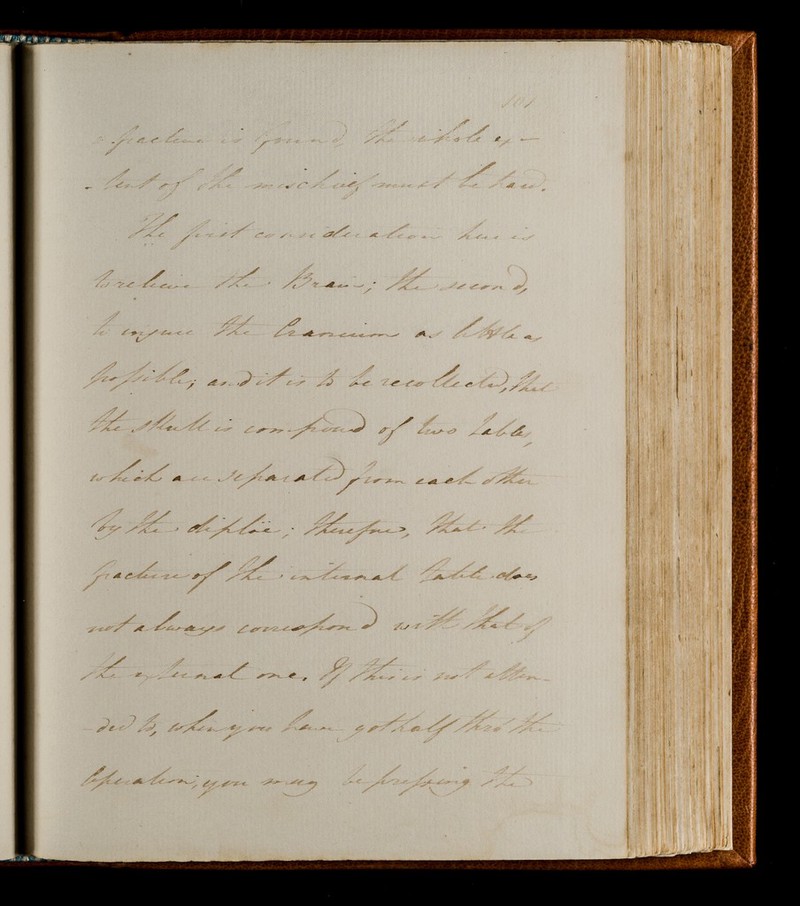 101
fracture is found, the whole ex-
-tent of the mischief must be
The first consideration here is
to relieve the Brain; the second,
to injure the Cranium as little as
possible; and it is to be recollected, that
the skull is composed of two tables,
which are separated from each other
by the diplöe; therefore, that the
fracture of the internal table does
not always correspond with that of
the external one. If this is not atten-
-ded to, when you have got half thro' the
Operation, you may be pressing the